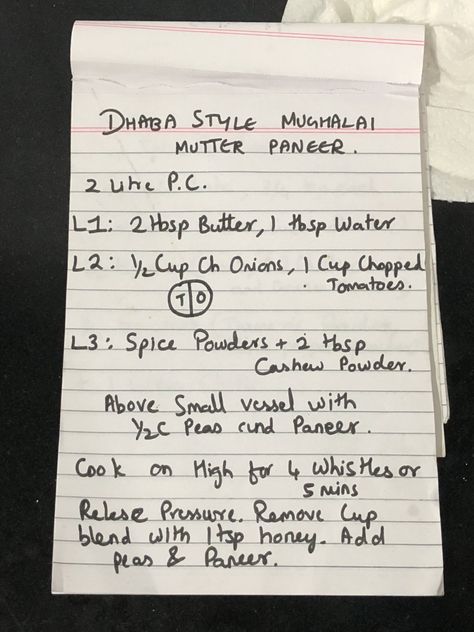 DHABA STYLE MUGHALAI
MUTTER PANEER.
2 Litre P.C.
L1: 2 tbsp Butter, 1 tbsp Water
L2: ½ Cup Ch Onions, 1 Cup Chopped
Tomatoes.
T O
L3: Spice Powders + 2 tbsp
Cashew Powder.
Above Small vessel with
½C Peas and Paneer.
Cook on High for 4 Whistles or
5 mins
Relese Pressure. Remove Cup
blend with 1 tsp honey. Add
peas & Paneer.